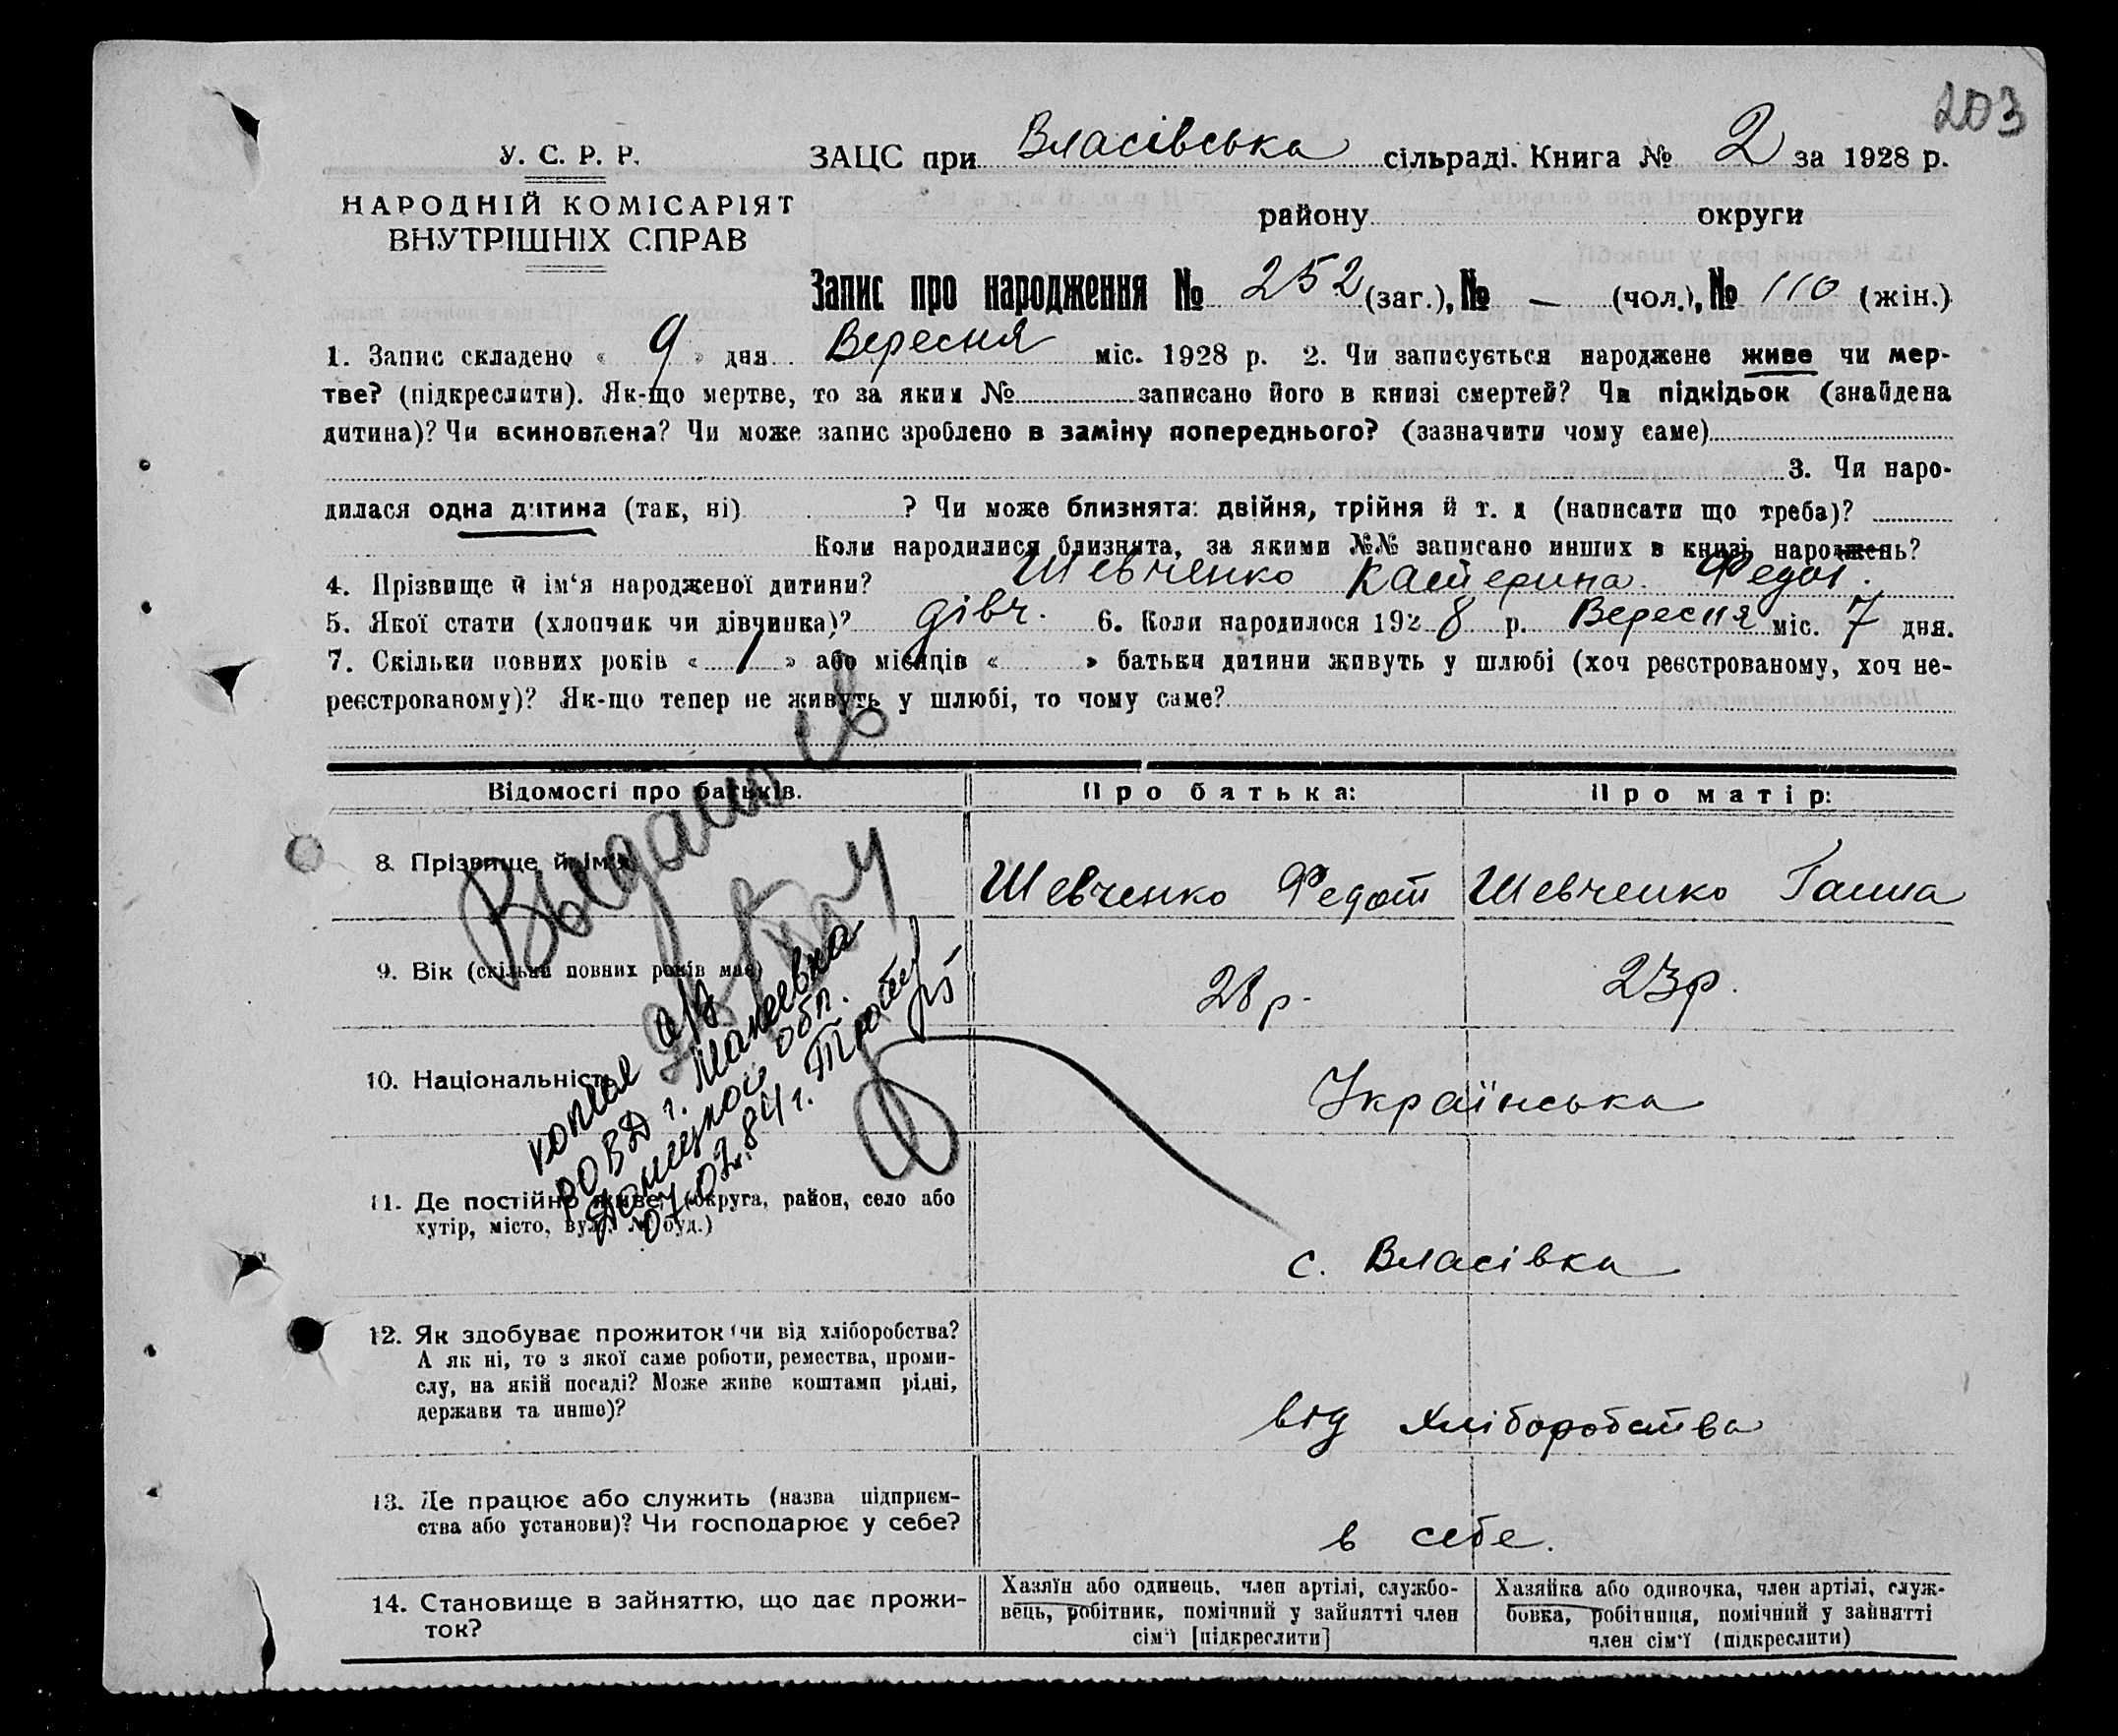 203
У. С. Р. Р.
НАРОДНІЙ КОМІСАРІЯТ
ВНУТРІШНІХ СПРАВ
ЗАЦС при Власівська сільраді. Книга № 2 за 1928 р.
району округи
Запис про народження № 252 (заг.), № — (чол.), № 110 (жін.)
1. Запис складено « 9 » дня Вересня міс. 1928 р. 2. Чи записується народжене живе чи мер-
тве? (підкреслити). Як-що мертве, то за яким № записано його в книзі смертей? Чи підкідьок (знайдена
дитина)? Чи всиновлена? Чи може запис зроблено в заміну попереднього? (зазначити чому саме)
3. Чи наро-
дилася одна дитина (так, ні) ? Чи може близнята: двійня, трійня й т. д (написати що треба)?
Коли народилися близнята, за якими №№ записано инших в книзі народжень?
4. Прізвище й ім‘я народженої дитини? Шевченко Катерина Федот.
5. Якої стати (хлопчик чи дівчинка)? дівч. 6. Коли народилося 1928 р. Вересня міс. 7 дня.
7. Скільки повних років « 1 » або місяців « » батьки дитини живуть у шлюбі (хоч реєстрованому, хоч не-
реєстрованому)? Як-що тепер не живуть у шлюбі, то чому саме?
Відомості про батьків. Про батька: Про матір:
8. Прізвище й ім'я Шевченко Федот Шевченко Ганна
9. Вік (скільки повних років має) 28 р. 23 р.
10. Національність Українська
11. Де постійно живе (округа, район, село або
хутір, місто, вул. № буд.)
с. Власівка
12. Як здобуває прожиток (чи від хліборобства?
А як ні, то з якої саме роботи, ремества, проми-
слу, на якій посаді? Може живе коштами рідні,
держави та инше)?
від хліборобства
13. Де працює або служить (назва підприєм-
ства або установи)? Чи господарює у себе?
в себе.
14. Становище в зайняттю, що дає прожи-
ток?
Хазяїн або одинець, член артілі, службо-
вець, робітник, помічний у зайнятті член
сім'ї [підкреслити]
Хазяйка або одиночка, член артілі, служ-
бовка, робітниця, помічний у зайнятті
член сім'ї (підкреслити)
Выдано св
копия а/з
РОВД г. Макеевка
Донецкой обл.
07.84 г.